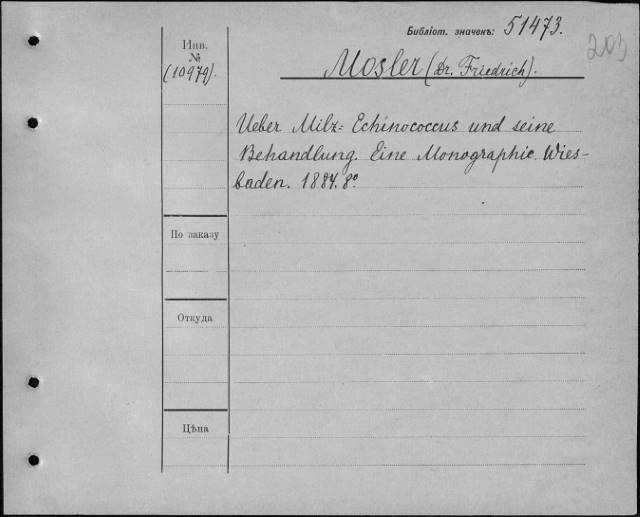 Библіот. значекъ: 51473.
203
Инв.
№
(10979).
Mosler (Dr. Friedrich).
Ueber Milz= Echinococcus und seine
Behandlung. Eine Monographie. Wies-
baden. 1884. 8º
По заказу
Откуда
Цѣна